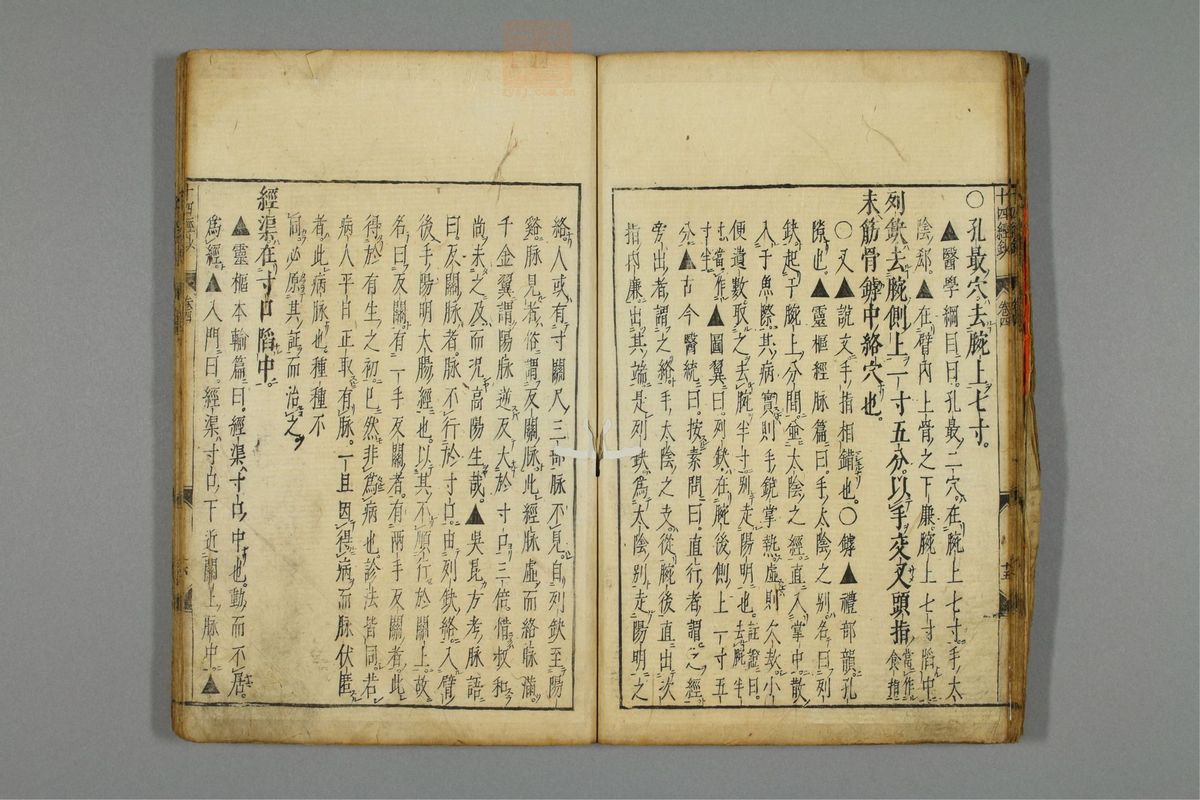 十四經鈔 卷四 十五
○孔最穴去腕上七寸。
▲醫學綱目曰。孔最二穴。在腕上七寸手太
陰郄。▲在臂內上骨之下廉。腕上七寸䧟中
列缺去腕側上一寸五分。以手交叉頭指當作食指
末筋骨罅中絡穴也。
○叉▲說文手指相錯也。○罅▲禮部韻孔
隙也▲靈樞經脉篇曰。手太陰之別。名曰列
缺。起于腕上分間。並太陰之經。直入掌中。散
入于魚際。其病實則手銳掌熱。虛則欠㰦小
便遺數。取之去腕半寸。別走陽明也。註證曰。去腕半
寸當作
▲圖翼曰。列缺。在腕後側上一寸五
分▲古今醫統曰。按素問曰。直行者謂之經。
旁出者。謂之絡。手太陰之支。從腕後直出次
指內廉。出其端。是列缺。爲太陰別走陽明之
絡。人或有寸關尺。三部脉不見。自列缺至陽
谿脉見者。俗謂反關脉。此經脉虛。而絡脉滿。
千金翼謂陽脉逆反大於寸口三倍。惜叔和
尚未之及。而況高陽生哉。▲吳昆方考脉語
曰。反關脉者。脉不行於寸口。由列缺絡。入臂
後。手陽明大腸經也。以其不順行於關上。故
名曰反關。有一手反關者。有兩手反關者。此
得於有生之初。已然。非爲病也。診法皆同。若
病人平日正取有脉。一旦因得病而脉伏匿
者。此病脉也。種種不
同。必原其証而治之
經渠在寸口䧟中。
▲靈樞本輸篇曰。經渠。寸口中也。動而不居。
爲經▲入門曰。經渠。寸口下近關上脉中。▲